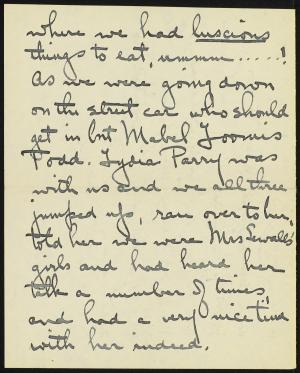 where we had luscious
things to eat, ummm.....!
As we were going down
on the street car who should
get in but Mabel Loomis
Todd. Lydia Parry was
with us and we all three
jumped up, ran over to her,
told her we were Mrs Sewall's
girls and had heard her
talk a number of times,
and had a very nice time
with her indeed.